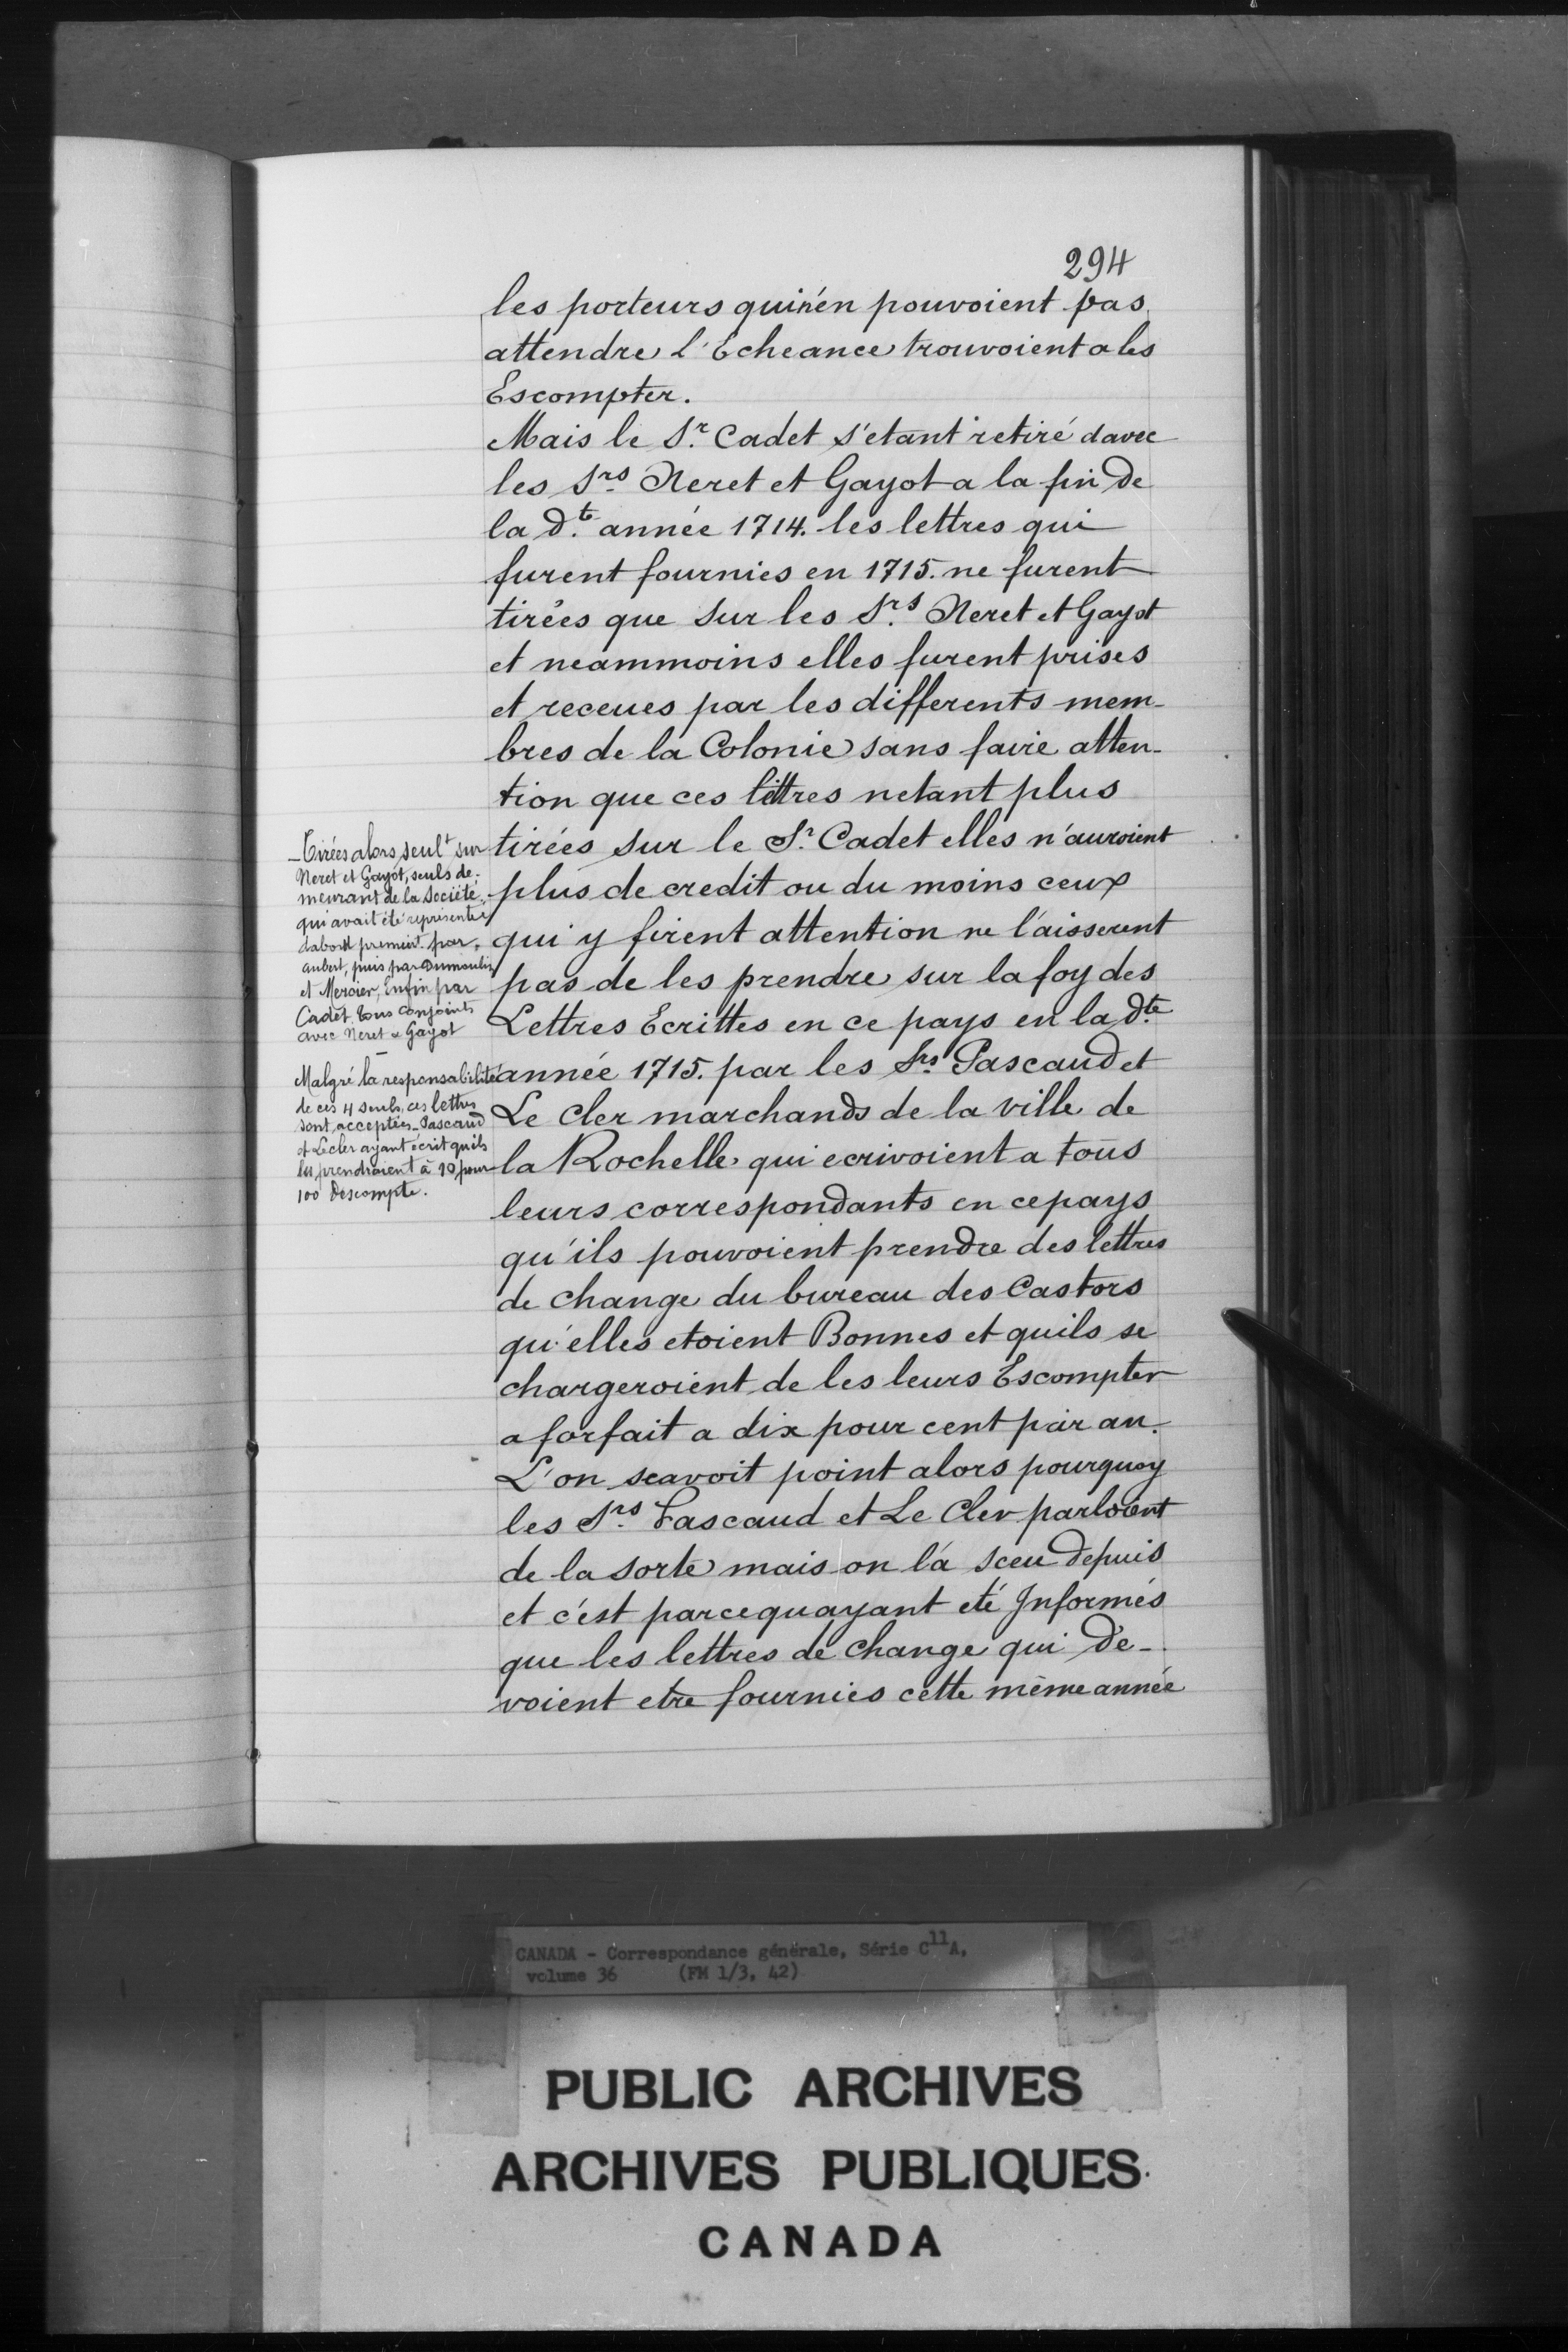 294
les porteurs qui n'en pouvoient pas
attendre l'Echeance trouvoient a les
Escompter.
Mais le Sr. Cadet s'etant retiré davec
les Srs. Neret et Gayot a la fin de
la dte. année 1714. les lettres qui
furent fournies en 1715. ne furent
tirées que sur les Srs. Neret et Gayot
et neammoins elles furent prises
et receues par les differents mem-
bres de la Colonie sans faire atten-
tion que ces lettres netant plus
tirées sur le Sr. Cadet elles n'auroient
plus de credit ou du moins ceux
qui y firent attention ne laisserent
pas de les prendre sur la foy des
Lettres Ecrittes en ce pays en la dte.
année 1715. par les Srs. Pascaud et
Le Cler marchands de la ville de
la Rochelle qui ecrivoient a tous
leurs correspondants en ce pays
qu'ils pouvoient prendre des lettres
de change du bureau des Castors
qu'elles etoient Bonnes et quils se
chargeroient de les leurs Escompter
a forfait a dix pour cent par an.
L'on scavoit point alors pourquoy
les Srs. Pascaud et Le Cler parloient
de la sorte mais on l'a sceu depuis
et c'est parcequayant eté Informés
que les lettres de change qui de-
voient etre fournies cette même année
- Tirées alors seult sur
Neret et Gayot, seuls de-
meurant de la Société
qui avait été représentée
dabord premièrt. par
Aubert, puis par Dumoulin
et Mercier, enfin par
Cadet tous conjoints
avec Neret & Gayot
-
Malgré la responsabilité
de ces 4 seuls, ces lettres
sont acceptées - Pascaud
et Lecler ayant écrit quils
les prendraient à 10 pour
100 descompte.
CANADA - Correspondance générale, Série C11A,
volume 36 (FM 1/3, 42)
PUBLIC ARCHIVES
ARCHIVES PUBLIQUES
CANADA